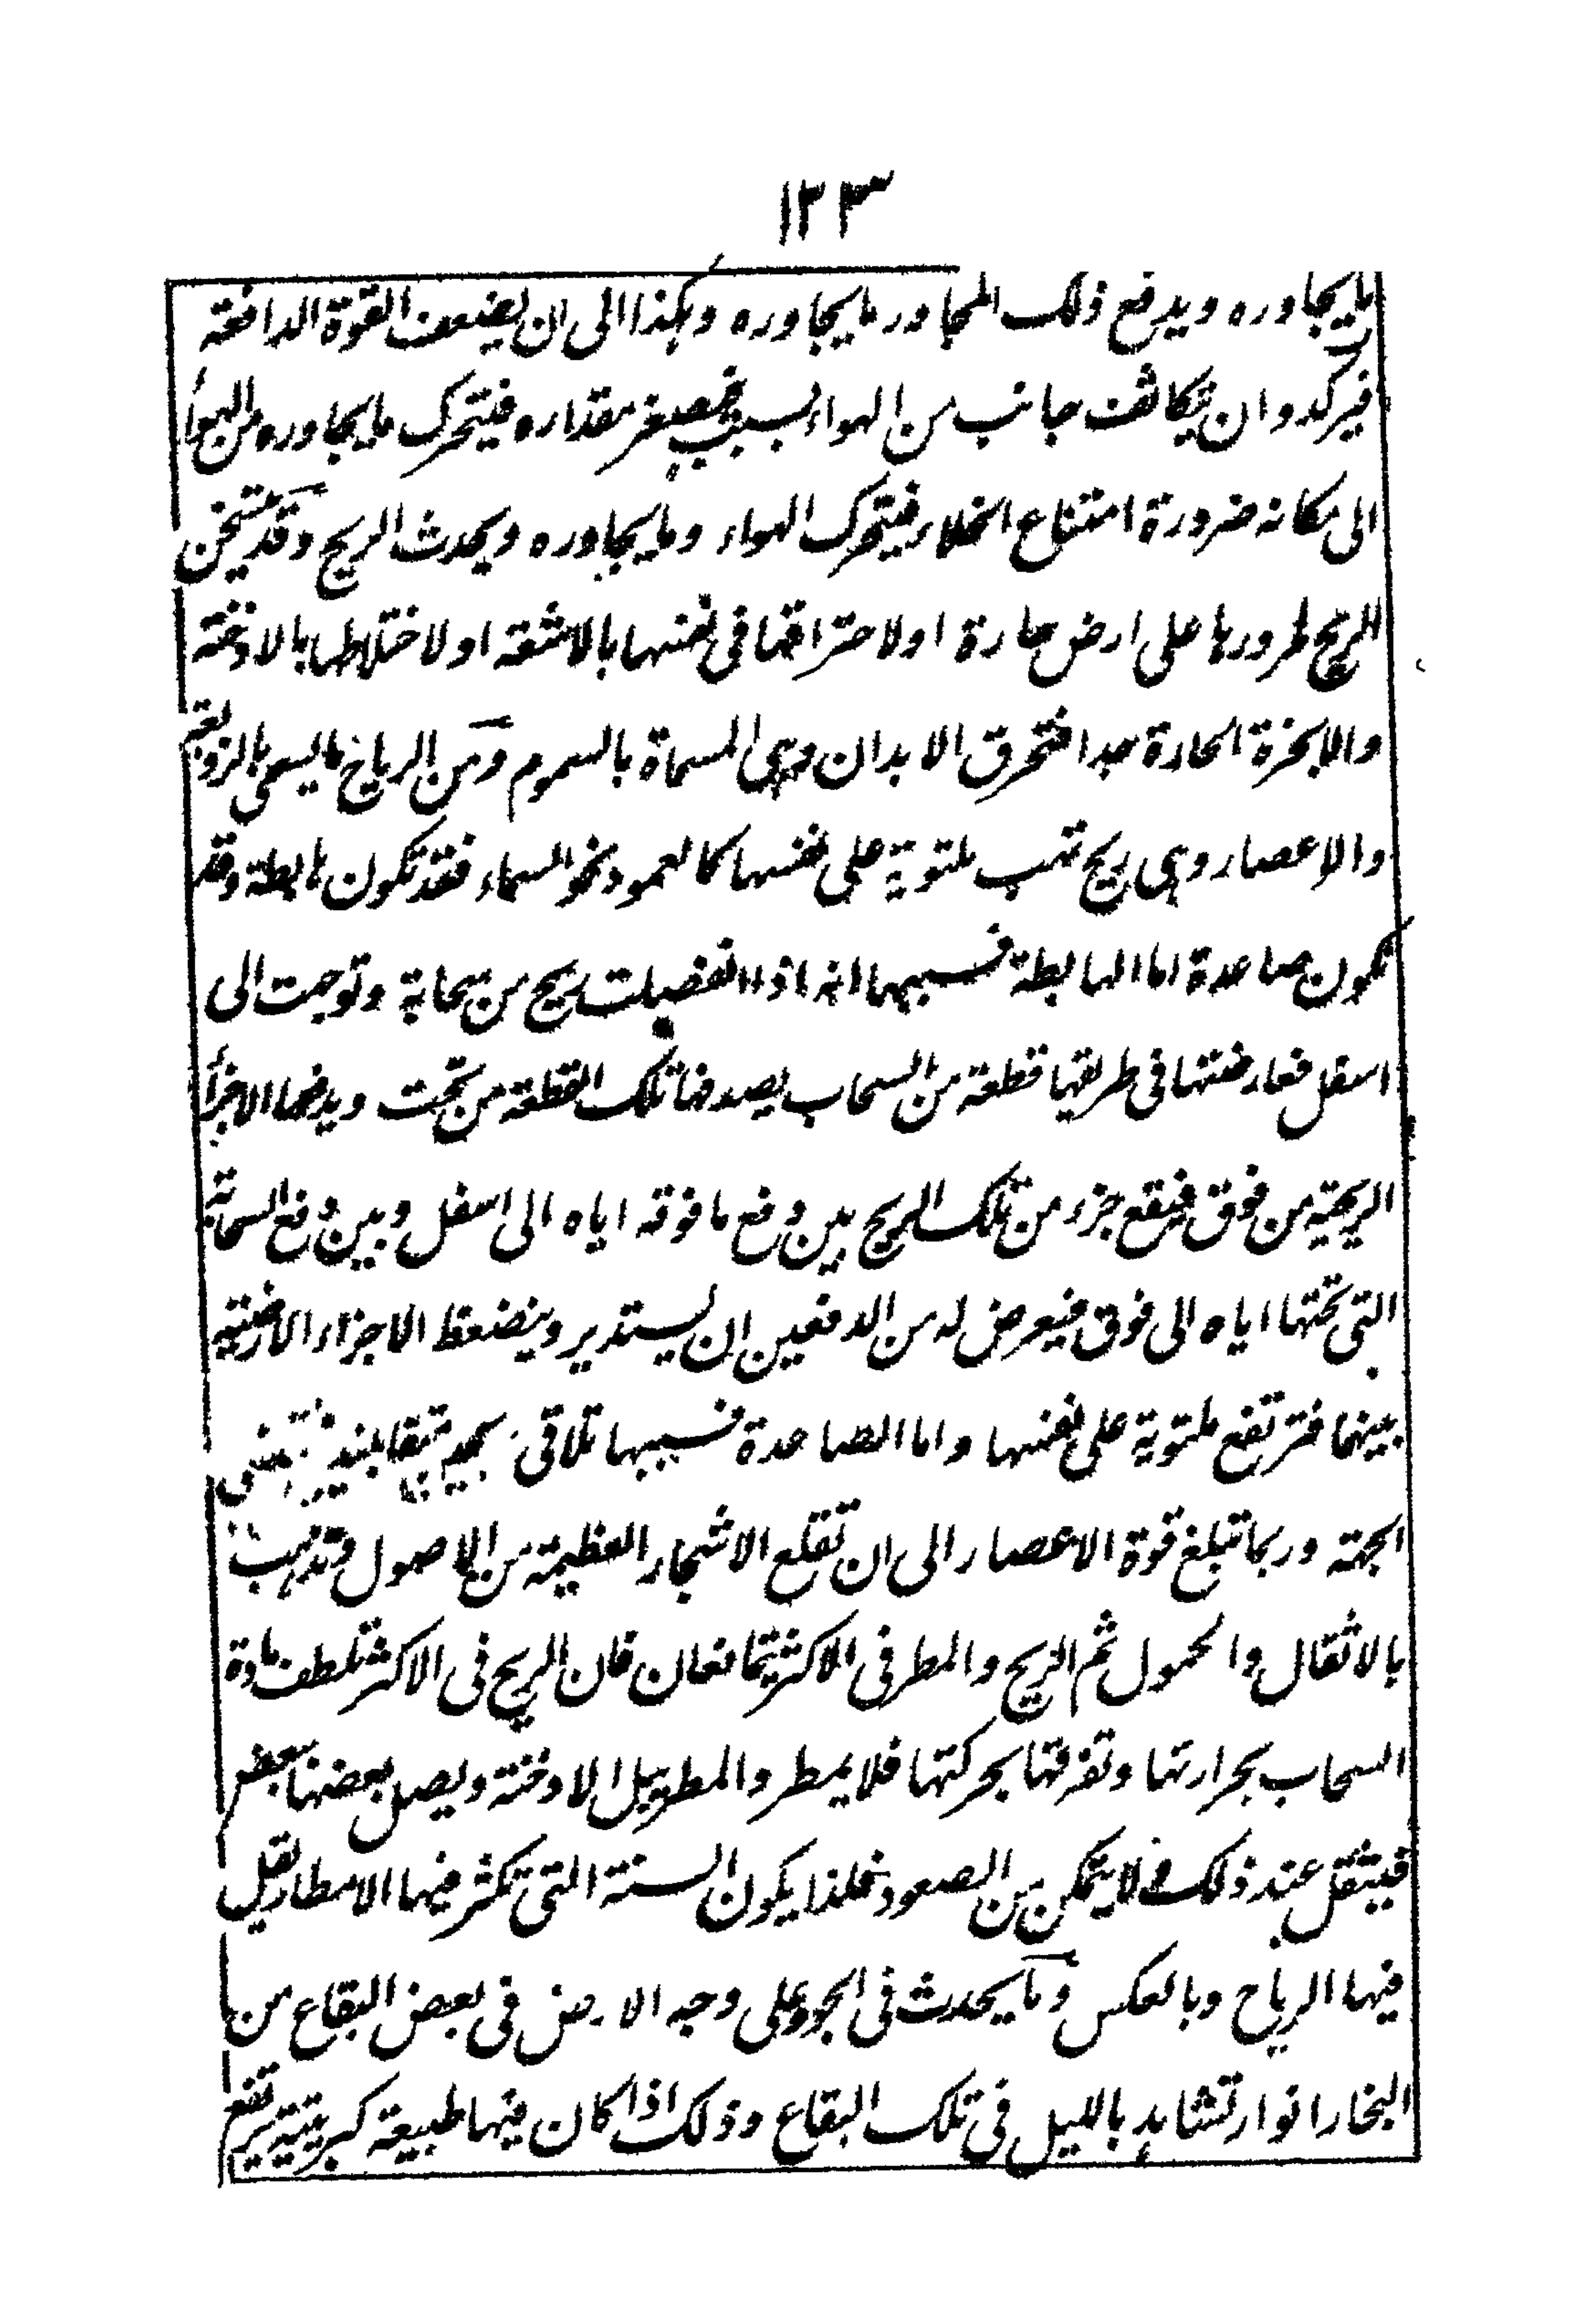 ١٢٣
ما يجاوره ويدفع ذلك المجاور ما يجاوره وهكذا الى ان يضعف القوة الدافعة
فيركد وان يتكاثف جانب من الهواء بسبب فيصغر مقداره فيتحرك ما يجاوره من الهواء
الى مكانه ضرورة امتناع الخلاء فيتحرك الهواء وما يجاوره ويحدث الريح وقد يتسخن
الريح لمرورها على ارض حارة او لاحتراقها فى نفسها بالاشعة او لاختلاطها بالادخنة
والابخرة الحارة جدا فتحرق الابدان وهى المسماة بالسموم ومن الرياح ما يسمى بالزوبعة
والاعصار وهى ريح تهب ملتوية على نفسها كالعمود نحو السماء فقد تكون هابطة وقد
تكون صاعدة اما الهابطة فسببها انه اذا انفصلت ريح من سحابة وتوجهت الى
اسفل فعارضتها فى طريقها قطعة من السحاب يصدفها تلك القطعة من تحت ويدفعها الاجزاء
الريحية من فوق فيقع جزء من تلك الريح بين دفع ما فوقه اياه الى اسفل وبين دفع السحابة
التى تحتها اياه الى فوق فيعرض له من الدفعين ان يستدير وينضغط الاجزاء الارضية
بينهما فترتفع ملتوية على نفسها واما الصاعدة فسببها تلاقى ريحين متقابلتين مختلفتى
الجهة وربما تبلغ قوة الاعصار الى ان تقلع الاشجار العظيمة من الاصول وتذهب
بالاثقال والحمول ثم الريح والمطر فى الاكثر يتمانعان فان الريح فى الاكثر تلطف مادة
السحاب بحرارتها وتفرقها بحركتها فلا يمطر والمطر يبل الادخنة ويصل بعضها ببعض
فيثقل عند ذلك فلا يتمكن من الصعود فلذا يكون السنة التى تكثر فيها الامطار يقل
فيها الرياح وبالعكس ومما يحدث فى الجو وعلى وجه الارض فى بعض البقاع من
البخار انوار تشاهد بالليل فى تلك البقاع وذلك اذا كان فيها طبيعة كبريتية يرتفع